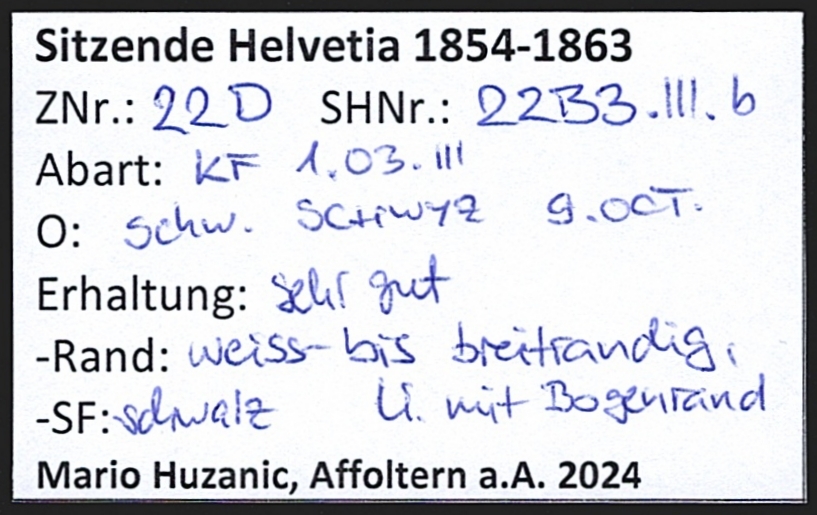 Sitzende Helvetia 1854-1863
ZNr.: 22D SHNr.: 22B3.III.b
Abart: KF 1.03.III
O: schw. SCHWYZ 9.OCT.
Erhaltung: sehr gut
-Rand: weiss- bis breitrandig,
-SF: schwarz Li. mit Bogenrand
Mario Huzanic, Affoltern a.A. 2024